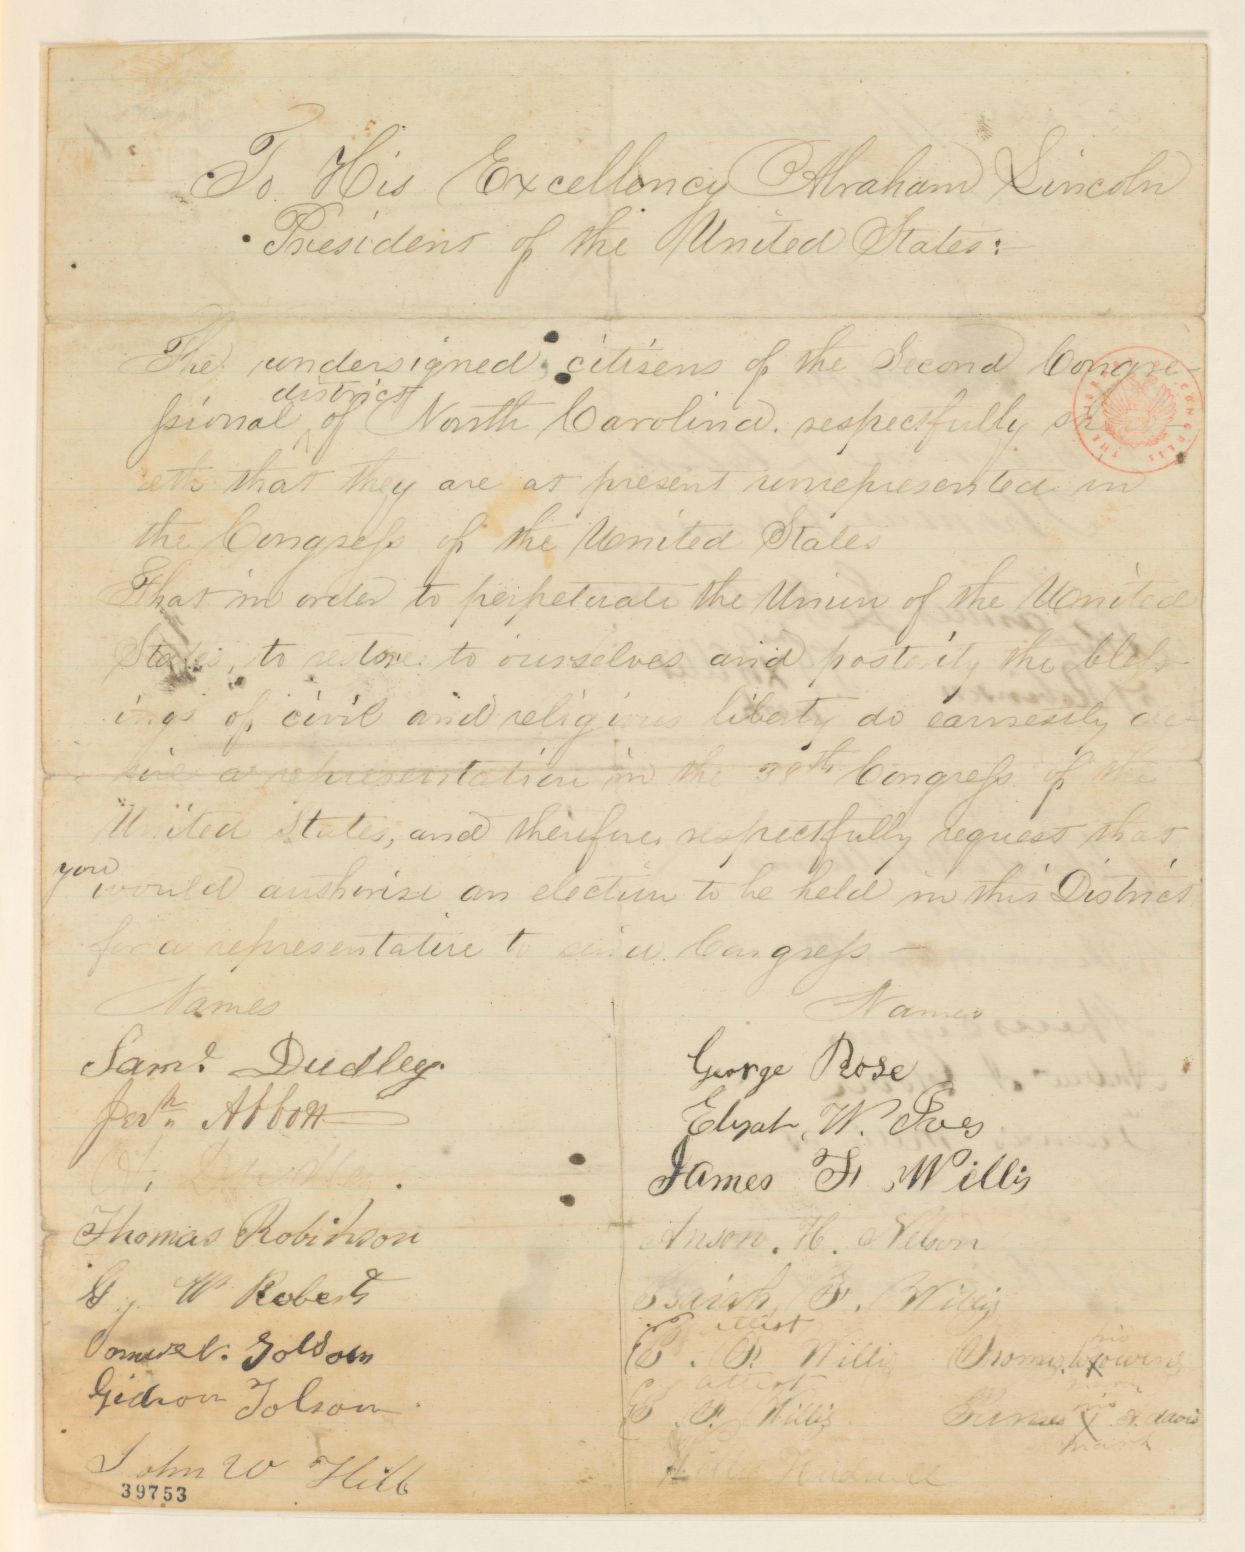 To His Excellency Abraham Lincoln
President of the United States:
The undersigned, citizens of the Second Congre-
ssional district of North Carolina. respectfully sh
eth that they are at present unrepresented in
the Congress of the United States
That in order to perpetuate the Union of the United
States, to restore to ourselves and posterity the bless-
ings of civil and religious liberty do earnestly de-
sire a representation in the 38th Congress of the
United States, and therefore respectfully request that
you would authorise an election to be held in this District
for a representative to said Congress —
Names
Names
Saml. Dudley.
George Rose
Abbott
W. Ives
Dudley.
James F. Willis
Thomas Robinson
Anson. H. Nelson
G W Roberts
F. Willis
attest
his
Tolson
Willis
x
mark
Gideon Tolson
attest
his
Willis
Davis
mark
John W Hill
39753